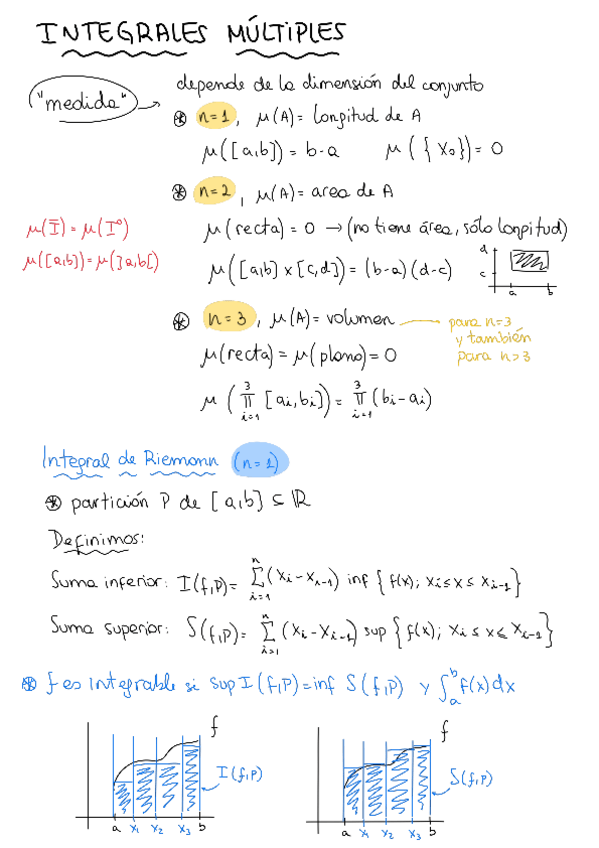 INTEGRALES MÚLTIPLES
"medida" → depende de la dimensión del conjunto
⊛ n=1, μ(A)= longitud de A
μ([a,b]) = b-a μ({x₀}) = 0
⊛ n=2, μ(A)= area de A
μ(Ī) = μ(I°)
μ([a,b])=μ(]a,b[)
μ(recta)=0 → (no tiene área, sólo longitud)
μ([a,b]×[c,d])=(b-a)(d-c)
d
c
a b
⊛ n=3, μ(A)= volumen
para n=3
y también
para n>3
μ(recta)=μ(plano)=0
μ(∏³ᵢ₌₁ [aᵢ,bᵢ]) = ∏³ᵢ₌₁ (bᵢ-aᵢ)
Integral de Riemann (n=1)
⊛ partición P de [a,b] ⊆ ℝ
Definimos:
Suma inferior: I(f,P)= ∑ⁿᵢ₌₁ (xᵢ-xᵢ₋₁) inf {f(x); xᵢ≤x≤xᵢ₋₁}
Suma superior: S(f,P)= ∑ⁿᵢ₌₁ (xᵢ-xᵢ₋₁) sup {f(x); xᵢ≤x≤xᵢ₋₁}
⊛ f es integrable si sup I(f,P)=inf S(f,P) y ∫ₐᵇ f(x)dx
f
I(f,P)
a x₁ x₂ x₃ b
f
S(f,P)
a x₁ x₂ x₃ b